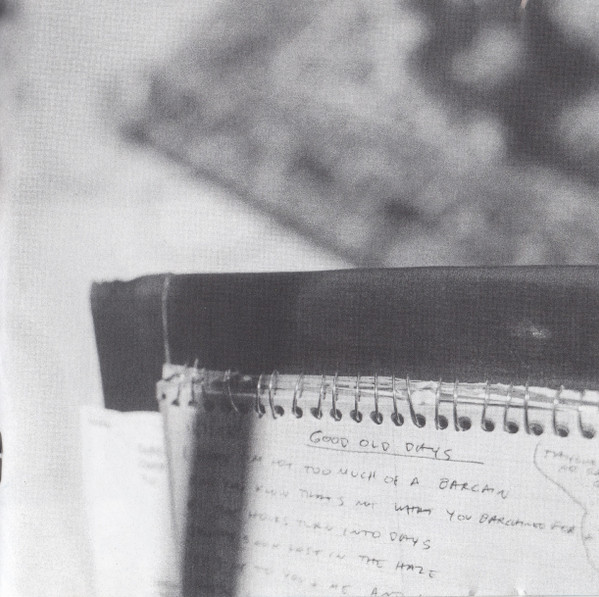 GOOD OLD DAYS
NOT TOO MUCH OF A BARGAIN
KNOW THAT'S NOT WHAT YOU BARGAINED FOR
HOURS TURN INTO DAYS
LOST IN THE HAZE
TO YOU + ME AND